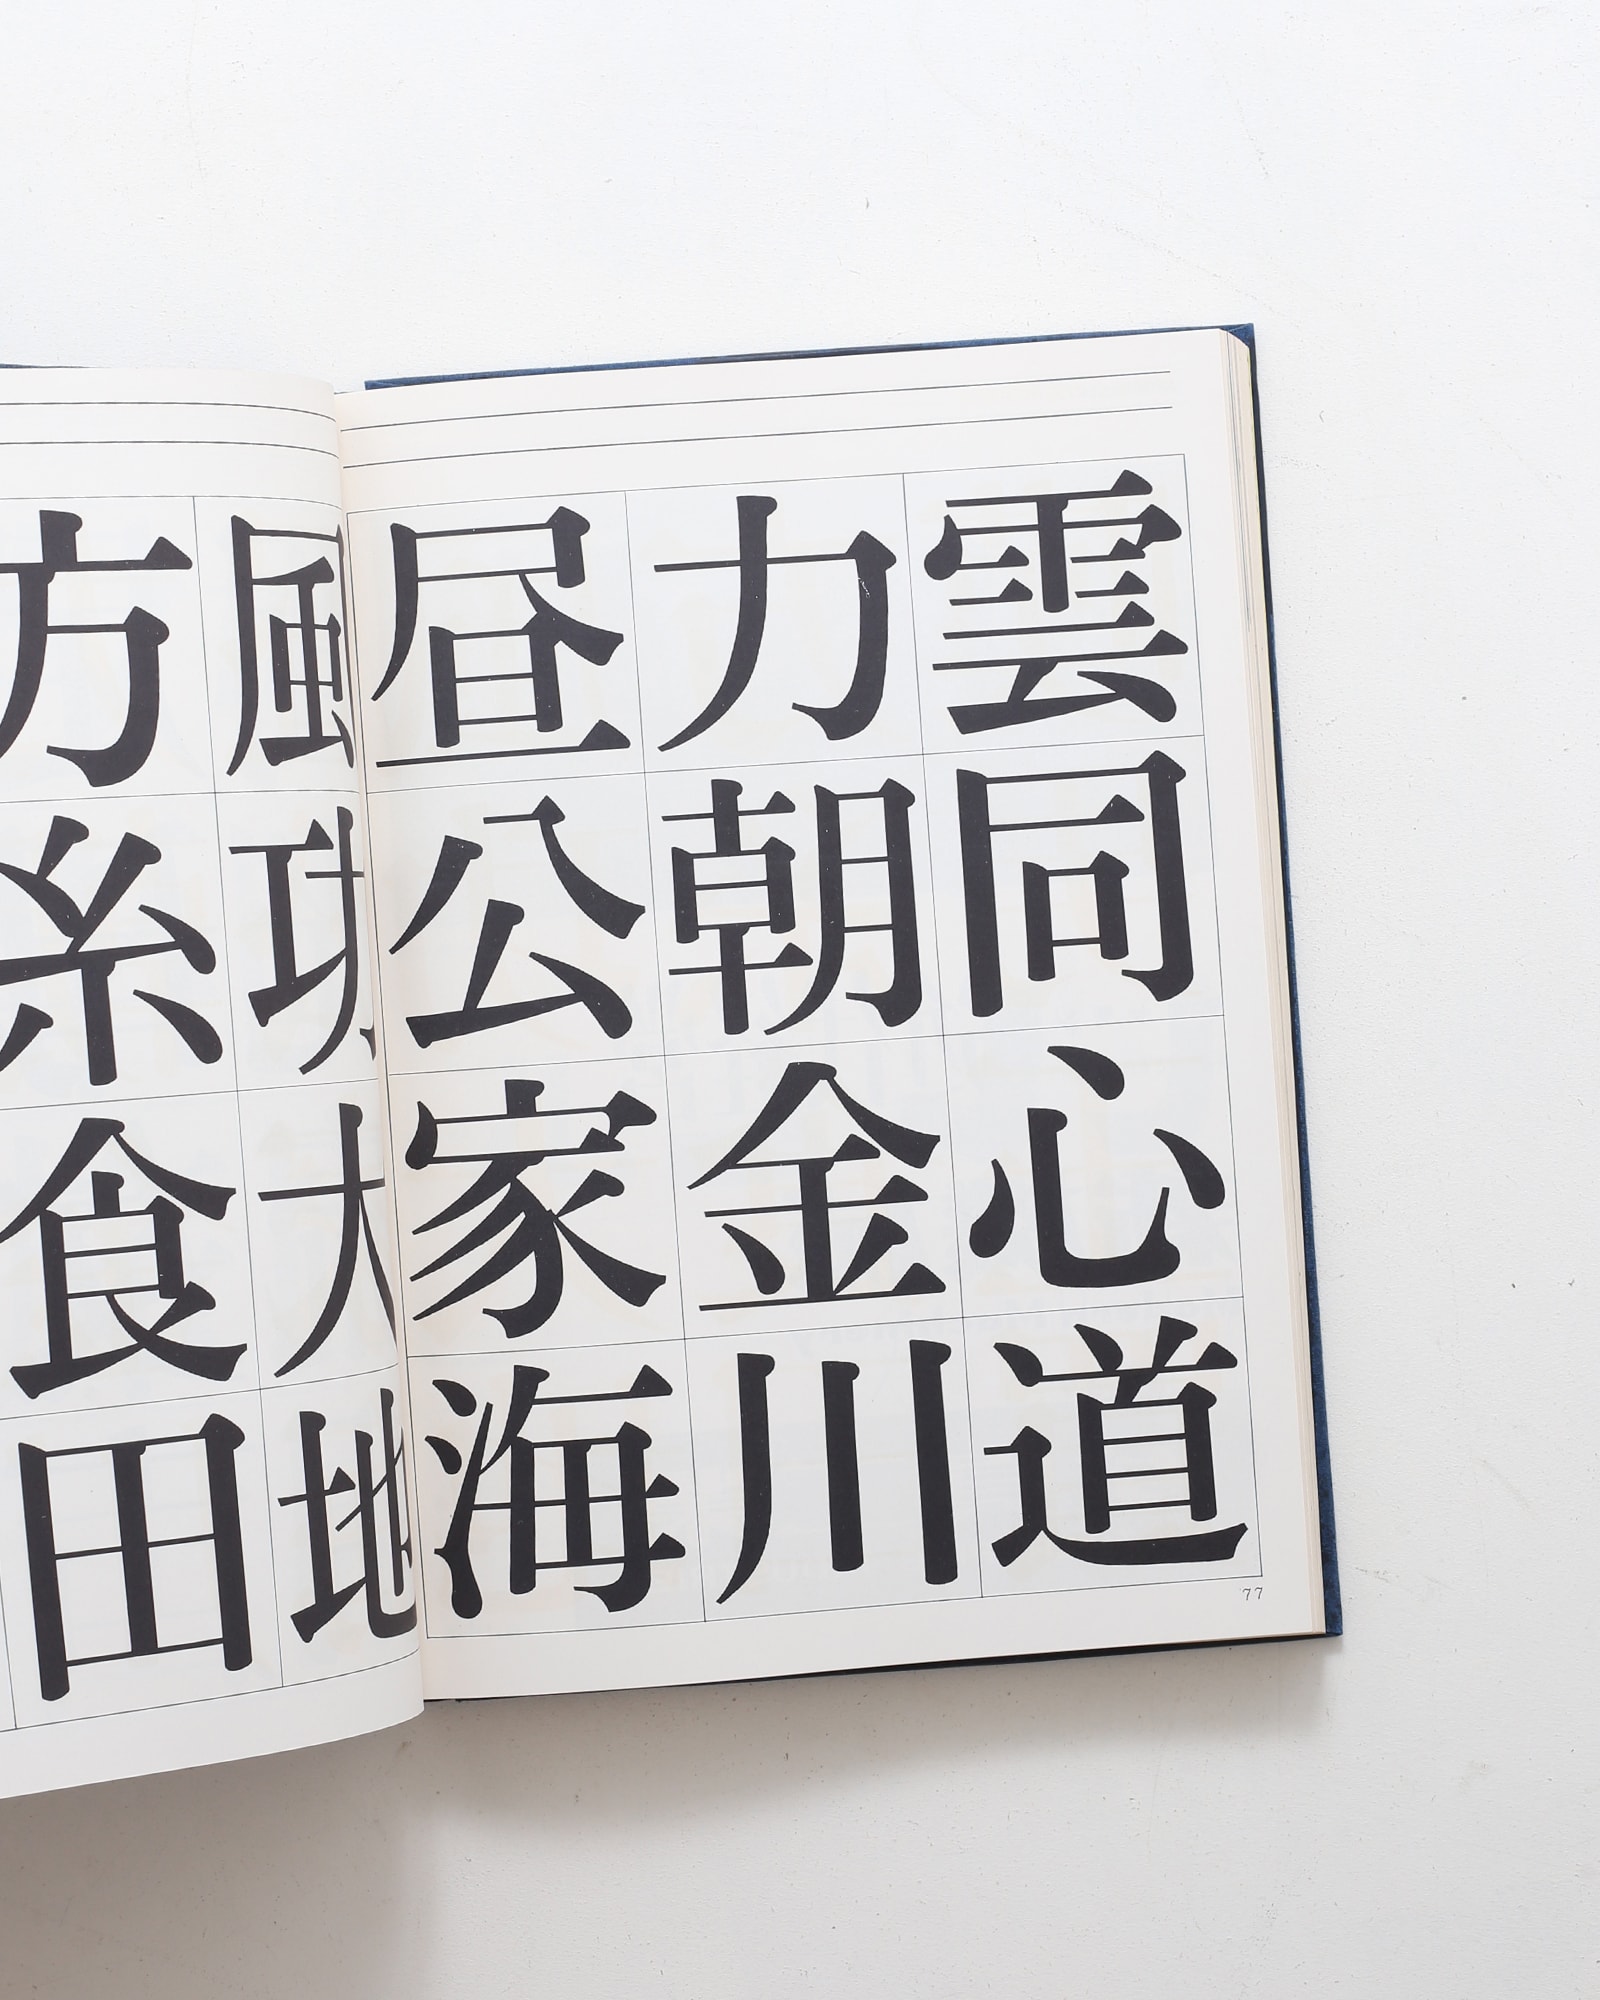 方 風
糸
食
田 地
昼 力 雲
公 朝 同
家 金 心
海 川 道
77